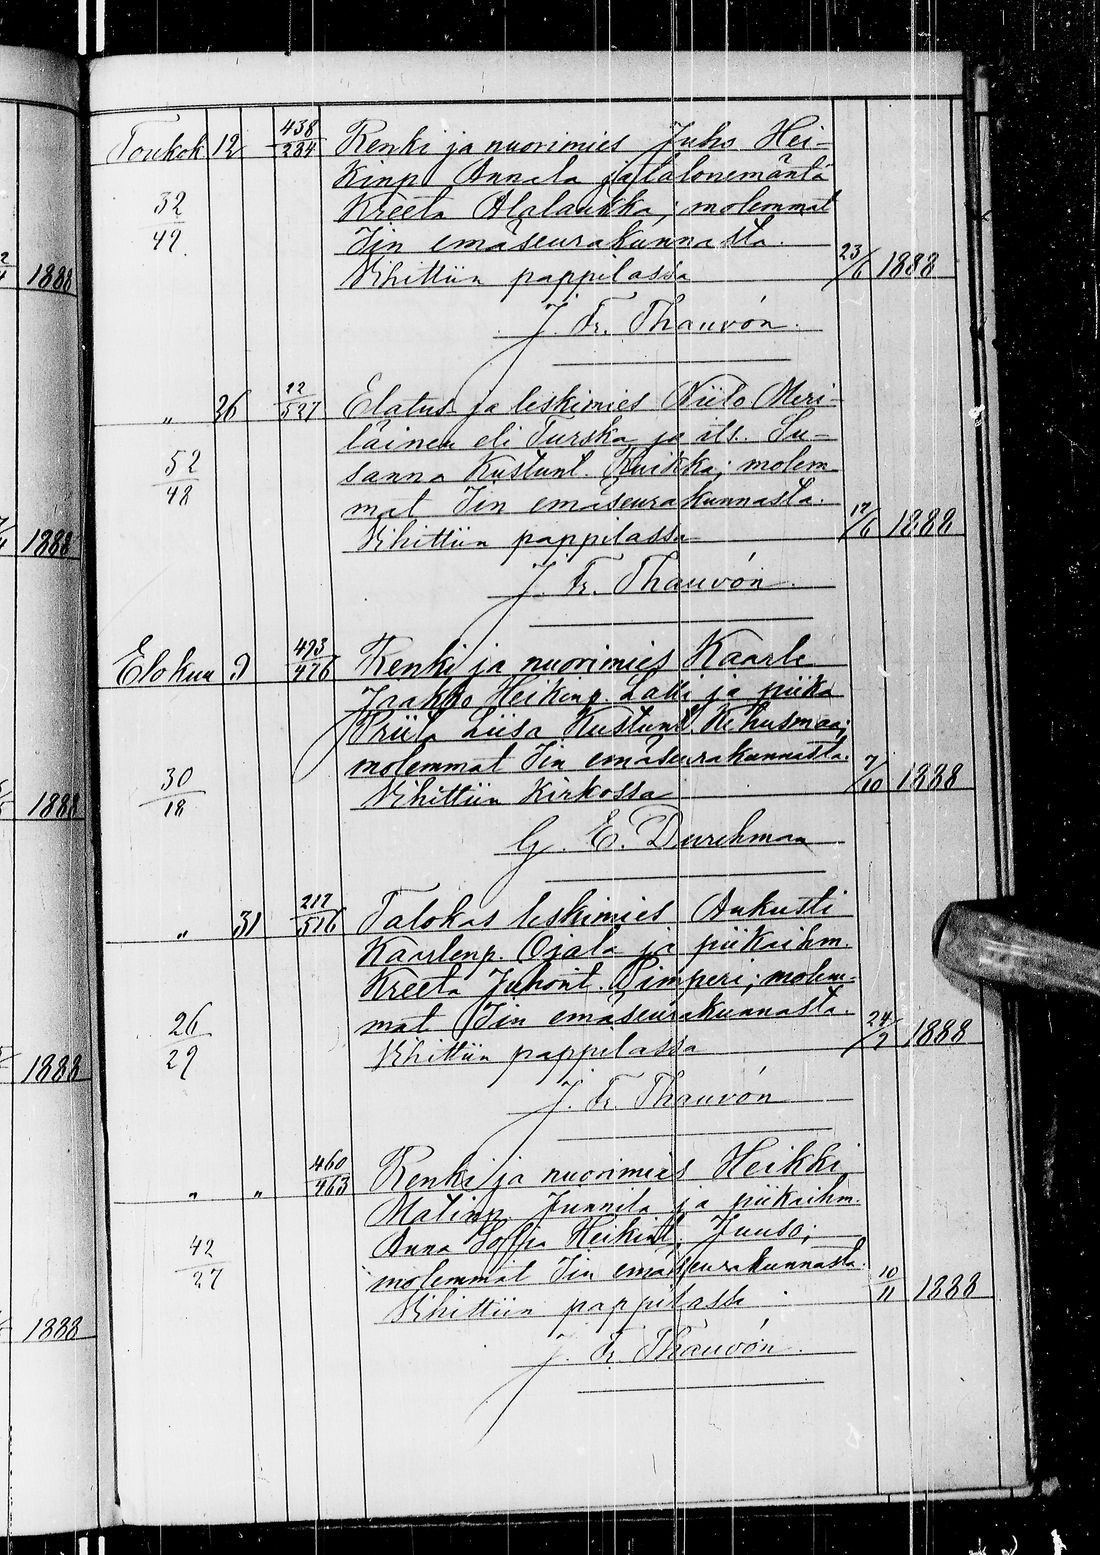 Toukok 12 438/284 Renki ja nuorimies Juho Hei-
kinp. Annala ja talonemäntä
32/49 Kreeta Alalaukka; molemmat
Iin emäseurakunnasta.
Vihittiin pappilassa 23/6 1888
J. Fr. Thauvón.
" 26 22/527 Elatus ja leskimies Niilo Meri-
läinen eli Turska ja its. Su-
52/48 sanna Kustunt. Kuikka; molem
mat Iin emäseurakunnasta.
Vihittiin pappilassa 17/6 1888
J. Fr. Thauvón.
Elokuu 9 493/476 Renki ja nuorimies Kaarle
Jaakko Heikinp. Lalli ja piika
Priita Liisa Kustunt. Kehusmaa;
30/18 molemmat Iin emäseurakunnasta.
Vihittiin Kirkossa 7/10 1888
G. E. Durchman
" 31 217/516 Talokas leskimies Aukusti
Kaarlenp. Ojala ja piikaihm.
Kreeta Juhont. Pimperi; molem-
26/29 mat Iin emäseurakunnasta.
Vihittiin pappilassa 24/9 1888
J. Fr. Thauvón
" " 460/463 Renki ja nuorimies Heikki
Matinp. Junnila ja piikaihm.
42/27 Anna Soffia Heikint. Juuso;
molemmat Iin emäseurakunnasta.
Vihittiin pappilassa. 10/11 1888
J. Fr. Thauvón.
1888
1888
1888
1888
1888